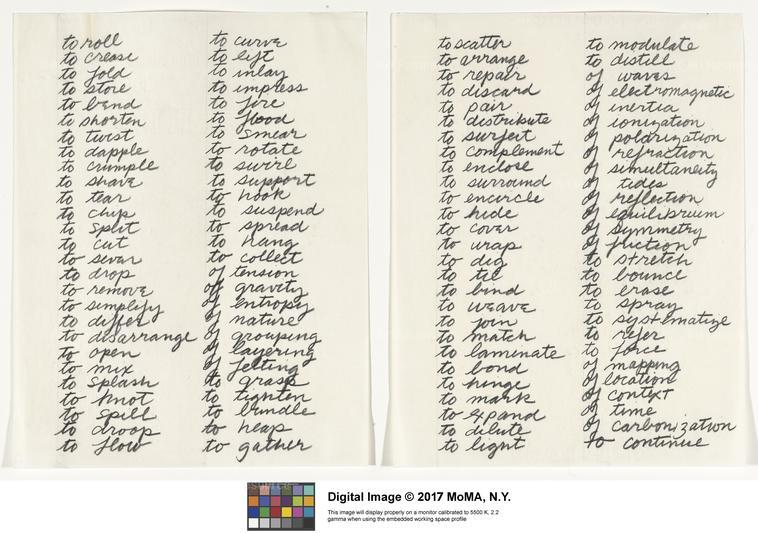 to roll
to crease
to fold
to store
to bend
to shorten
to twist
to dapple
to crumple
to shave
to tear
to chip
to split
to cut
to sever
to drop
to remove
to simplify
to differ
to disarrange
to open
to mix
to splash
to knot
to spill
to droop
to flow
to curve
to lift
to inlay
to impress
to fire
to flood
to smear
to rotate
to swirl
to support
to hook
to suspend
to spread
to hang
to collect
of tension
of gravity
of entropy
of nature
of grouping
of layering
of felting
to grasp
to tighten
to bundle
to heap
to gather
to scatter
to arrange
to repair
to discard
to pair
to distribute
to surfeit
to complement
to enclose
to surround
to encircle
to hide
to cover
to wrap
to dig
to tie
to bind
to weave
to join
to match
to laminate
to bond
to hinge
to mark
to expand
to dilute
to light
to modulate
to distill
of waves
of electromagnetic
of inertia
of ionization
of polarization
of refraction
of simultaneity
of tides
of reflection
of equilibrium
of symmetry
of friction
to stretch
to bounce
to erase
to spray
to systematize
to refer
to force
of mapping
of location
of context
of time
of carbonization
to continue
Digital Image © 2017 MoMA, N.Y.
This image will display properly on a monitor calibrated to 5500 K, 2.2
gamma when using the embedded working space profile